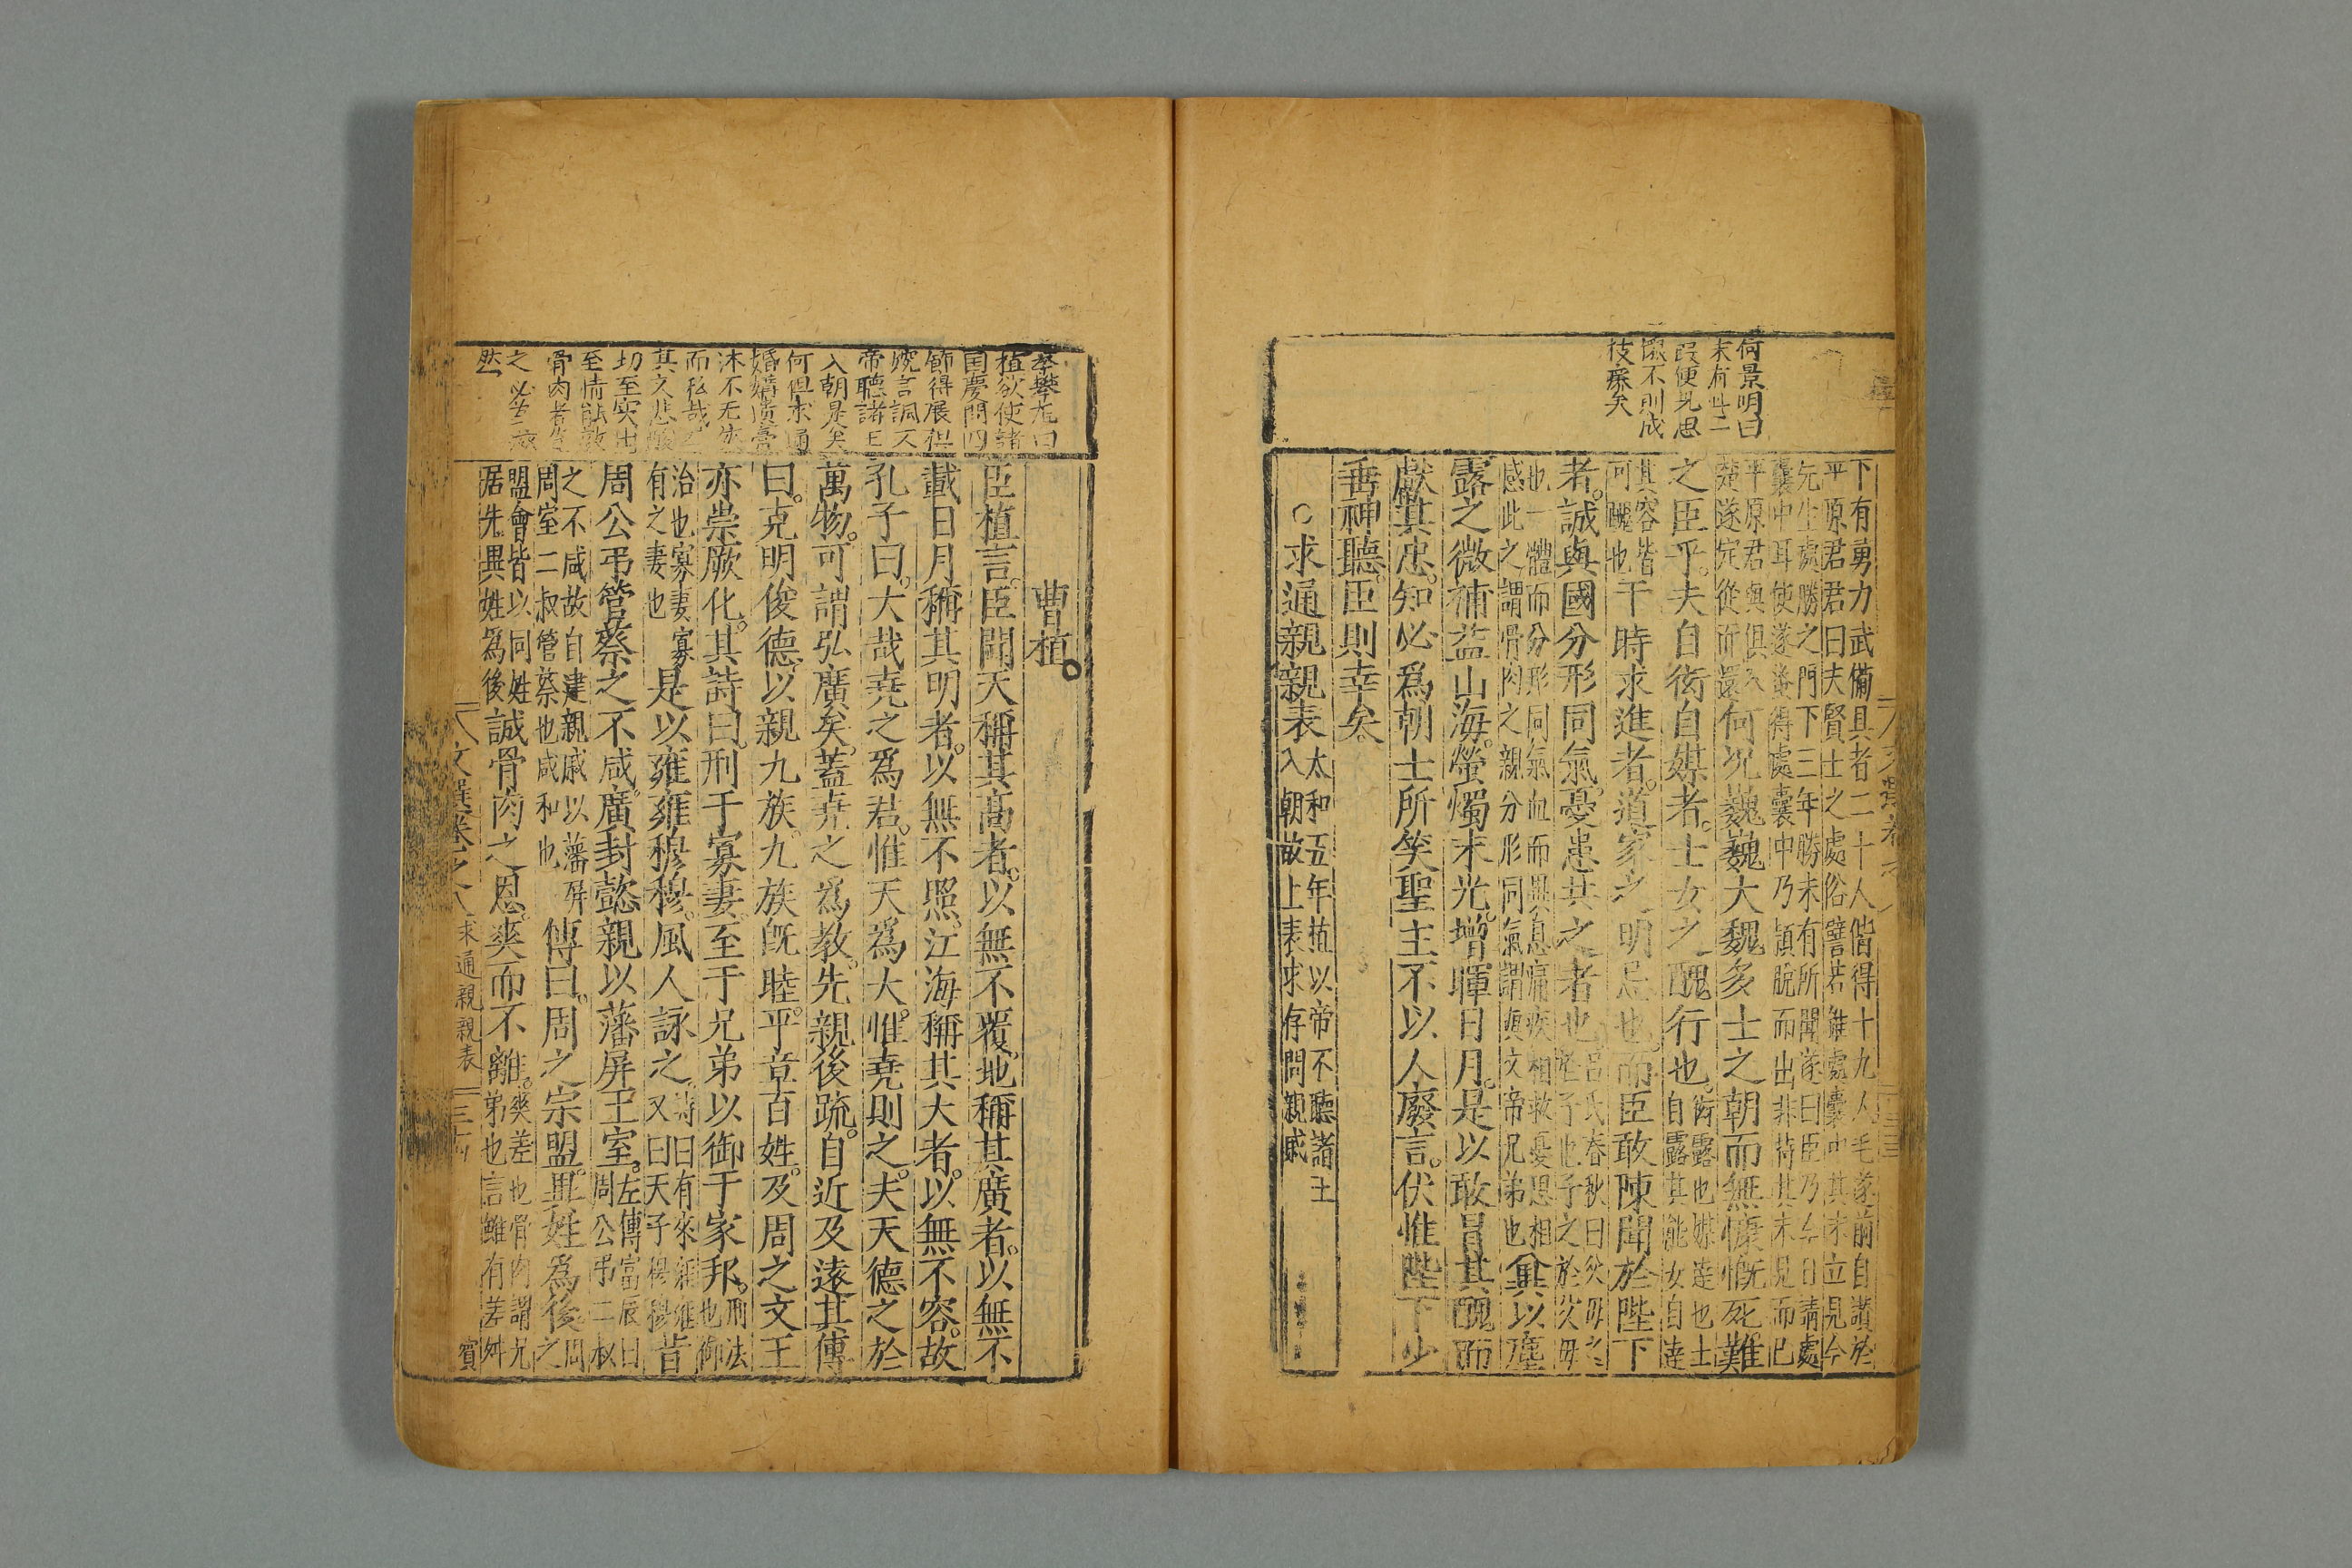 何景明曰
末有此二
段便見思
不則成
技癢矣
下有勇力武備具者二十人偕得十九人毛遂前自讃於
平原君君曰夫賢士之處俗譬若錐處囊中其末立見今
先生處勝之門下三年勝未有所聞遂曰臣乃今日請處
囊中耳使遂蚤得處囊中乃頴脱而出非特其末見而已
平原君與俱
楚遂定從而還
何况巍巍大魏多士之朝而無慷慨死難
之臣乎。夫自衒自媒者。士女之醜行也。
衒露也媒達也士
自露其能女自達
其容皆
可醜也
干時求進者。道家之明忌也。而臣敢陳聞於陛下
者。誠與國分形同氣。憂患共之者也。
呂氏春秋曰父母之
於子也子之於父母
也一體而分形同氣血而異息痛疾相救憂思相
感此之謂骨肉之親分形同氣謂與文帝兄弟也
兾以塵
露之微補益山海。螢燭末光。增暉日月。是以敢冒其醜而
獻其忠。知必爲朝士所笑聖主不以人廢言。伏惟陛下少
垂神聽。臣則幸矣
○求通親親表
太和五年植以帝不聽諸王
入朝故上表求存問親戚
植欲使諸
国慶問四
節得展但
婉言調又
帝聽諸王
入朝是矣
何但求通
婚媾
沐不无
而私哉
其文悲酸
切至突出
至情
骨肉者
之
然
曹植。
臣植言。臣聞天稱其高者。以無不覆。地稱其廣者。以無不
載日月稱其明者。以無不照。江海稱其大者。以無不容。故
孔子曰。大哉尭之爲君。惟天爲大。惟尭則之。夫天德之於
萬物。可謂弘廣矣。蓋尭之爲教。先親後疏。自近及遠。其傳
曰。克明俊德。以親九族。九族旣睦。平章百姓。及周之文王
亦崇厥化。其詩曰。刑于寡妻。至于兄弟以御于家邦。
刑法
也御
治也寡妻寡
有之妻也
是以雍雍穆穆。風人詠之。
詩曰有來雍雍
又曰天子穆穆
昔
周公弔管蔡之不咸。廣封懿親以藩屏王室。
左傳富辰曰
周公弔二叔
之不咸故自建親戚以藩屏
周室二叔管蔡也咸和也
傳曰。周之宗盟。異姓爲後。
周
之
盟會皆以同姓
居先異姓爲後
誠骨肉之恩。爽而不離。
爽差也骨肉謂兄
弟也言雖有差舛
賓
文選卷之八 求通親親表